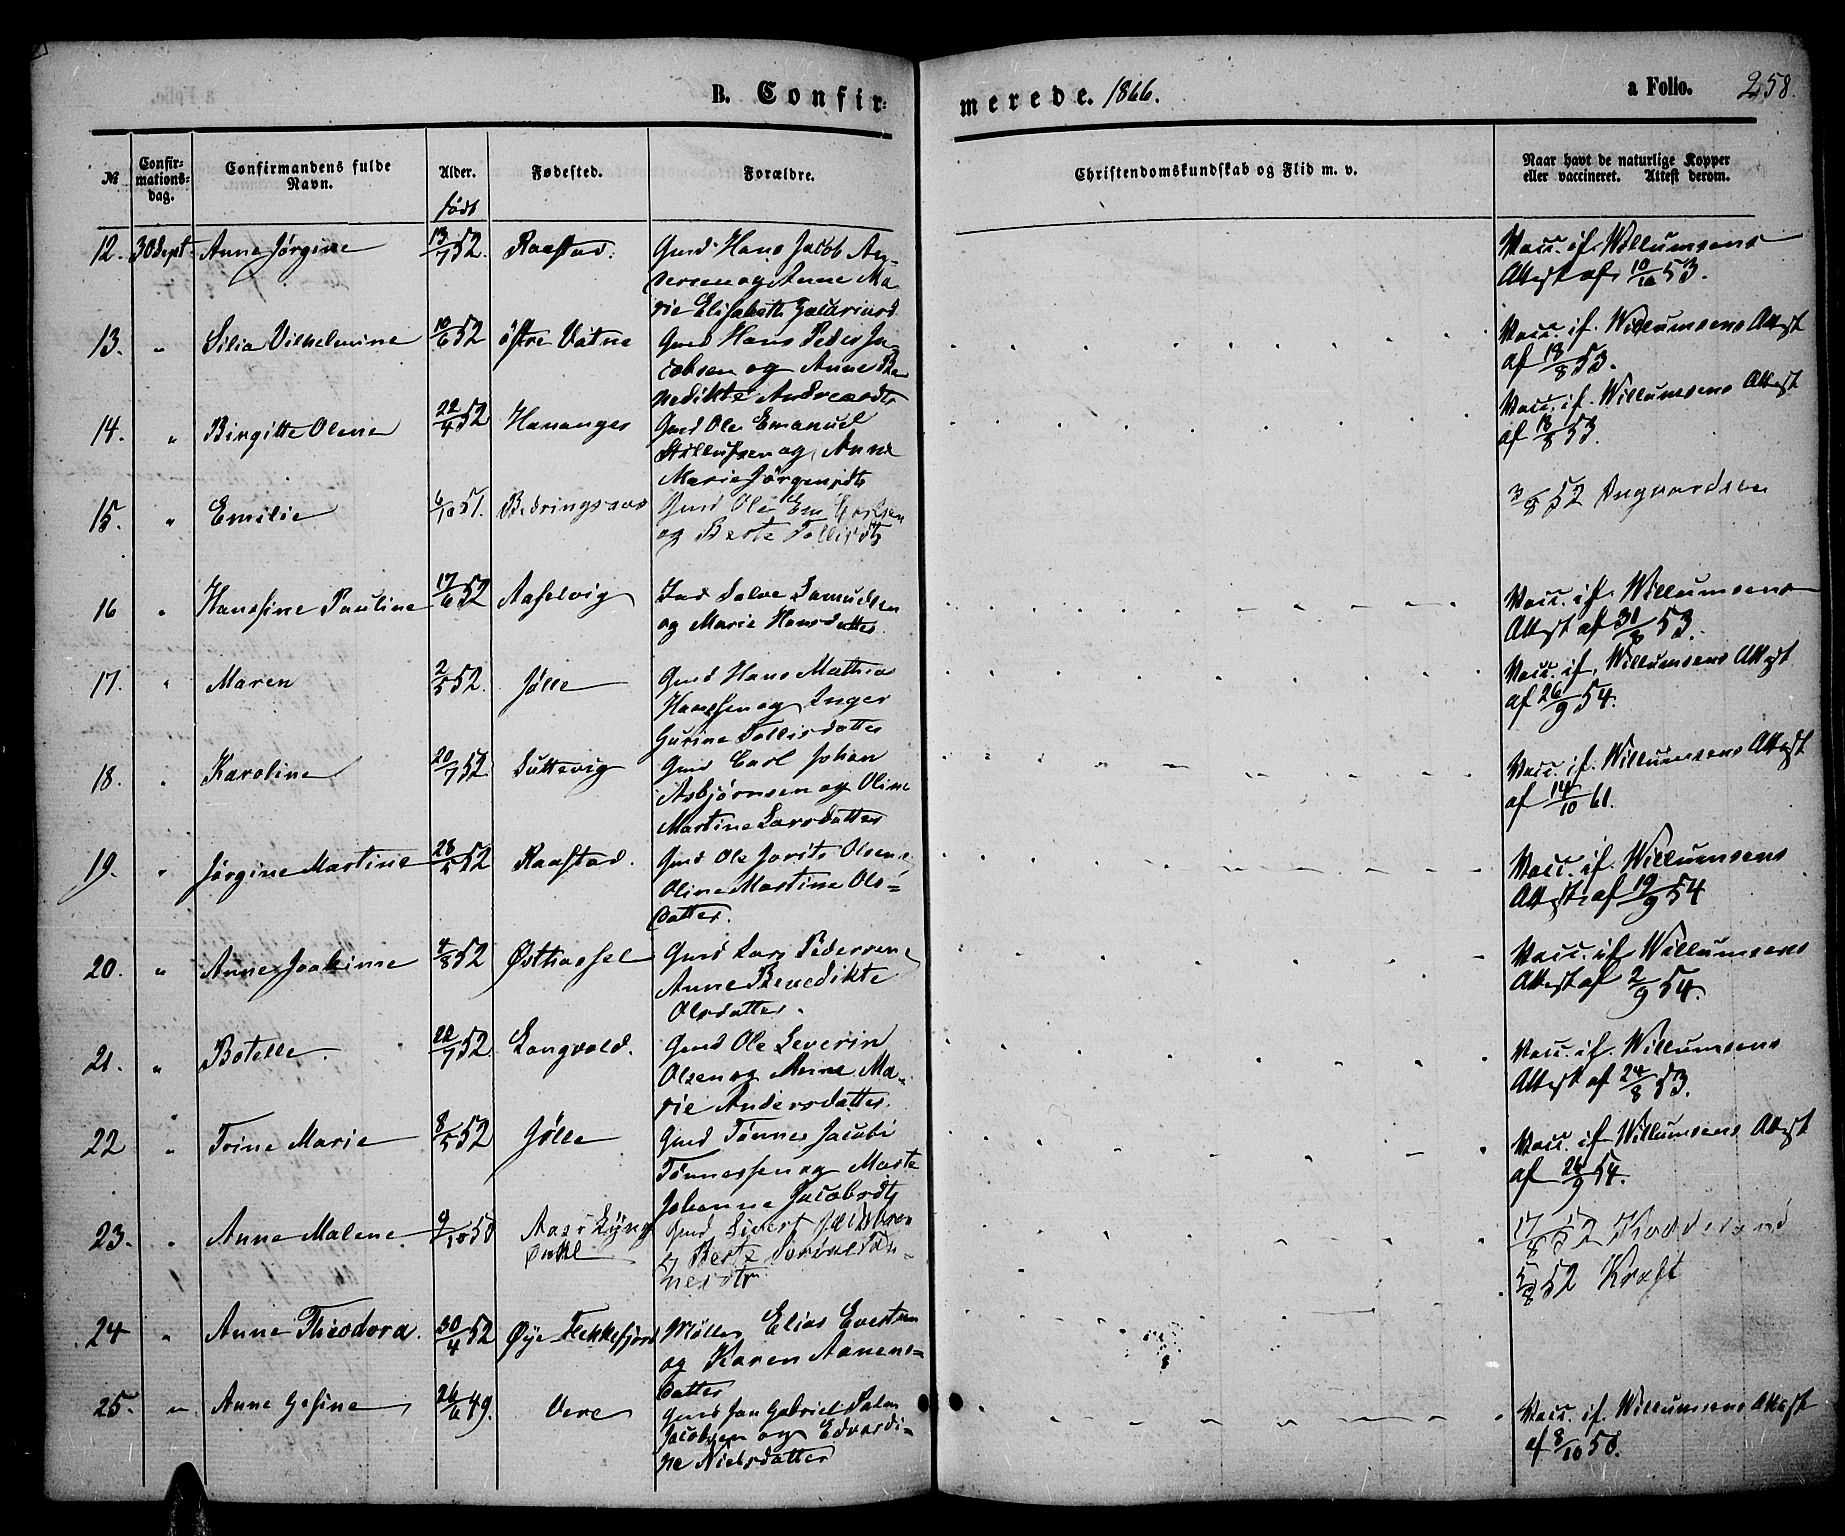 B. Confir=
merede. 1866.
a Folio. 258.
№
Confir=
mations=
dag.
Confirmandens fulde
Navn.
Alder.
født
Fødested.
Forældre.
Christendomskundskab og Flid m. v.
Naar havt de naturlige Kopper
eller vaccineret. Attest derom.
12. 30 Sept. Anne Jørgine 13/7 52. Raastad. Gmd Hans Jacob An-
dersen og Anne Ma-
rie Elisabeth
Vacc. if. Willumsens
Attest af 10/10 53.
13. " Silia Vilhelmine 10/6 52 østre Vatne Gmd Hans Peder Ja-
cobsen og Anne Be
nedikte Andreasdtr
Vacc. if. Willumsens Attest
af 18/8 53.
14. " Birgitte Olene 22/4 52 Hananger Gmd Ole Emanuel
og Anne
Marie Jørgensdtr
Vacc. if. Willumsens Attest
af 18/8 53.
15. " Emilie 6/10 51. Gmd Ole Em
og Berte Tollisdtr
3/8 52
16 " Hansine Pauline 17/6 52 Aaselvig Salve Samuelsen
og Marie Hansdatter.
Vacc. if. Willumsens
Attest af 31/8 53.
17. " Maren 2/5 52. Jølle Gmd Hans Mathias
Hansen og Inger
Gurine Tollisdatter
Vacc. if. Willumsens Attest
af 26/9 54.
18. " Karoline 20/7 52 Gmd Carl Johan
Asbjørnsen og Oline
Martine Larsdatter
Vacc. if. Willumsens Attest
af 14/10 61.
19. " Jørgine Martine 28/5 52 Raastad. Gmd Ole Olsen
Oline Martine Ols=
datter.
Vacc. if. Willumsens
Attest af 19/9 54
20. " Anne Joakime 4/8 52 Østhassel Gmd Lars Pedersen
Anne Benedikte
Olsdatter.
Vacc. if. Willumsens
Attest af 2/9 54.
21. " Botelle. 22/7 52 Langvold. Gmd Ole Severin
Olsen og Anne Ma-
rie Andersdatter.
Vacc. if. Willumsens
Attest af 24/8 53.
22 " Trine Marie 8/5 52 Jølle Gmd Tønnes Jacobi
Tønnessen og Marte
Johanne Jacobsdtr
Vacc. if. Willumsens Attest
af 26/9 54.
23. " Anne Malene 9/10 50 Aas i Lyng
Gmd Sivert Jacobsen
og Berte
17/8 52
5/8 52 Kraft
24 " Anne Theodora. 30/4 52 Øye Flekkefjord Møller Elias Evertsen
og Karen Aanens=
datter
25. " Anne Gesine 26/6 49. Vere Gmd Jan Gabriel
Jacobsen og Edvardi-
ne Nielsdatter
Vacc. if. Willumsens Attest
af 8/10 50.